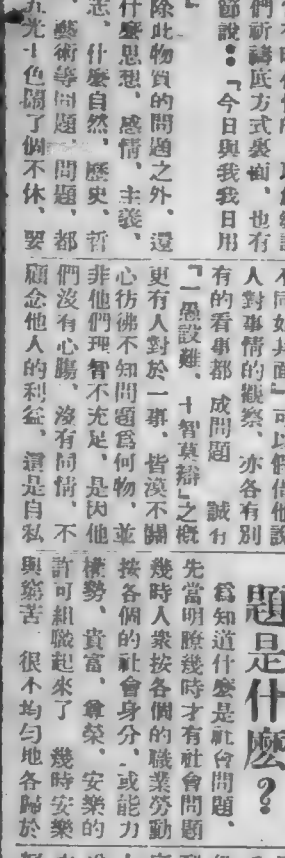 們祈禱底方式裏面、也有
節說：「今日與我我日用
」
除此物質的問題之外、還
什麼思想、感情、主義、
志、什麼自然、歷史、哲
、藝術等問題、問題、都
五光十色鬧了個不休、要
不同如其面」可以假借他說
人對事情的觀察、亦各有別
有的看事都 成問題 誠有
「一愚設難、十智莫辯」之慨
更有人對於一事、皆漠不關
心彷彿不知問題爲何物、並
非他們理智不充足、是因他
們沒有心腸、沒有同情、不
顧念他人的利益、這是自私
題是什麼？
爲知道什麼是社會問題、
先當明瞭幾時才有社會問題
幾時人衆按各個的職業勞動
按各個的社會身分、或能力
權勢、貴富、尊榮、安樂的
許可組織起來了 幾時安樂
與窮苦 很不均勻地各歸於